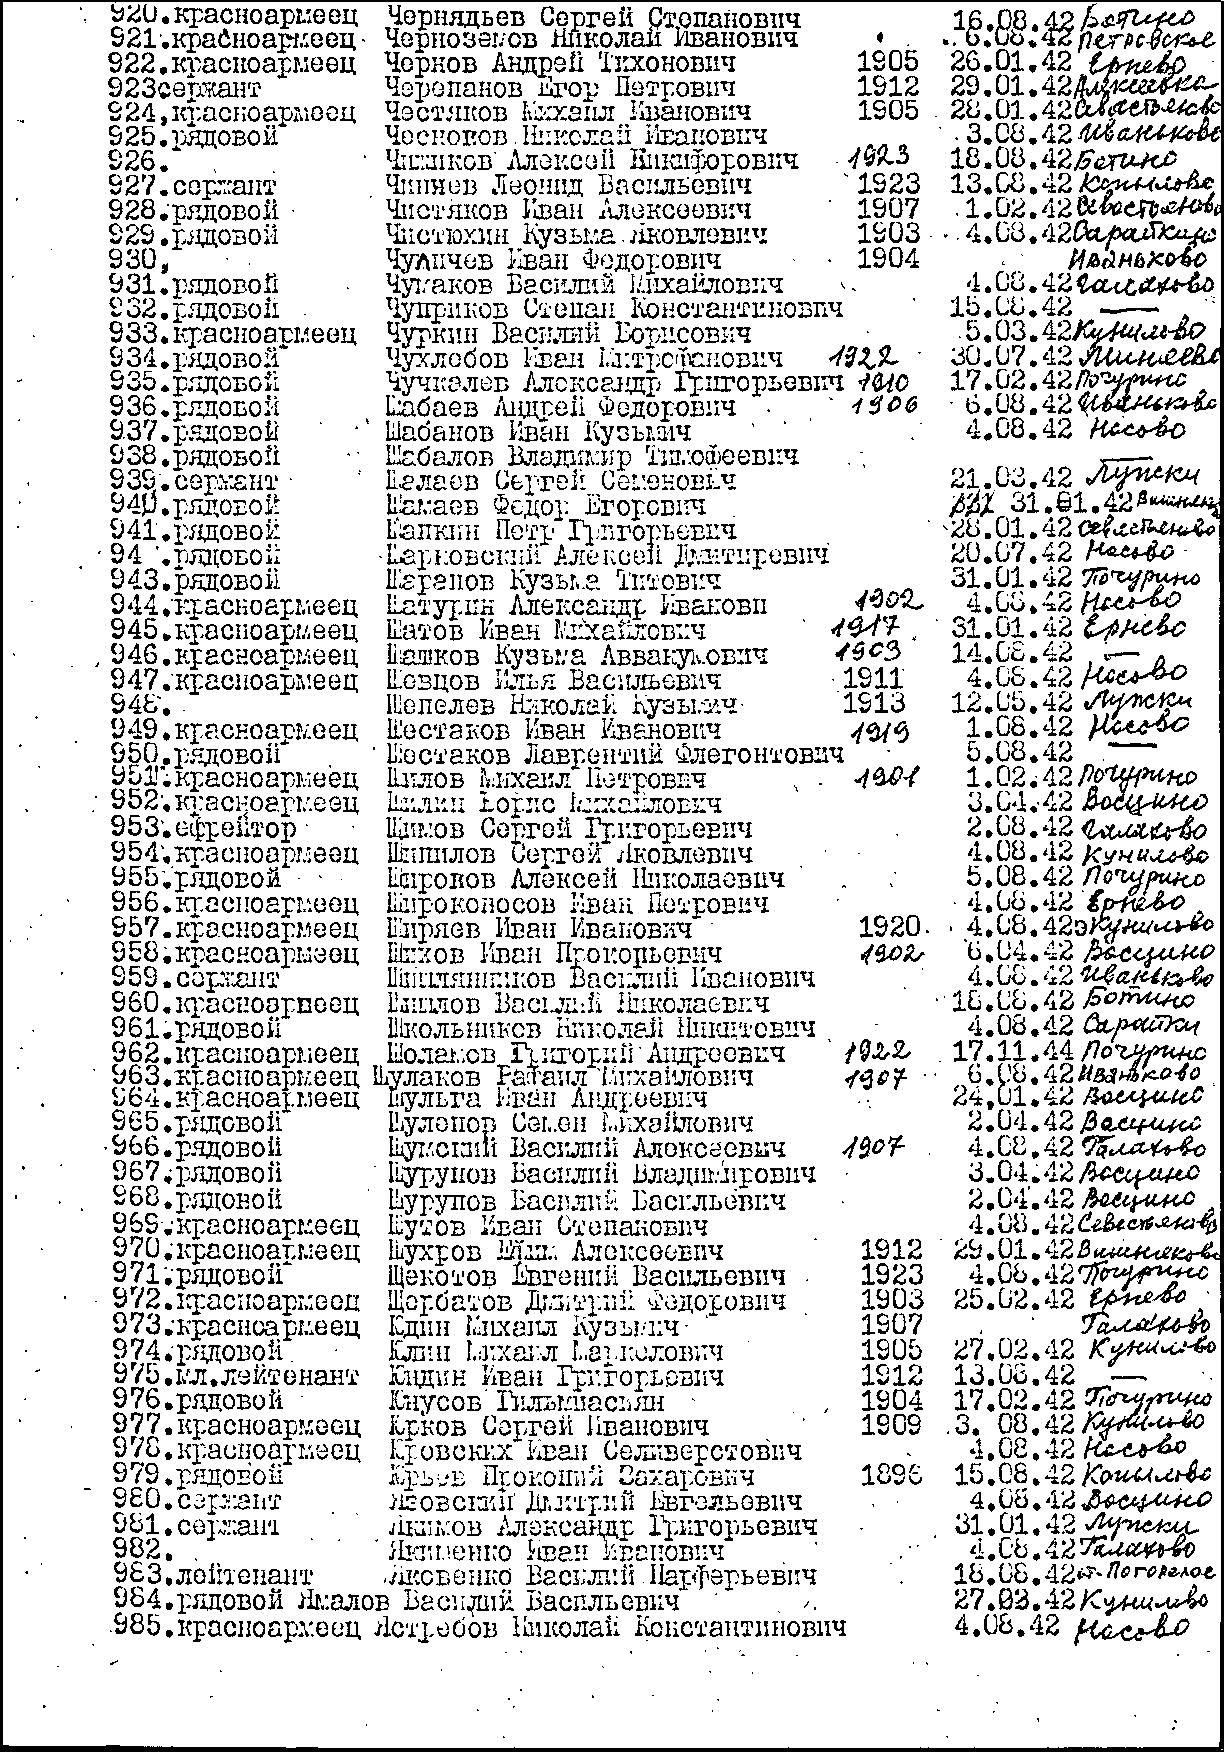 920.красноармеец Чернядьев Сергей Степанович 16.08.42 Бетино
921.красноармеец Черноземов Николай Иванович 6.08.42 Петровское
922.красноармеец Чернов Андрей Тихонович 1905 26.01.42 Ернево
923сержант Черепанов Егор Петрович 1912 29.01.42 Алексеевка
924,красноармеец Честяков Михаил Иванович 1905 28.01.42 Севастьяново
925.рядовой Чесноков Николай Иванович 3.08.42 Иваньково
926. Чижиков Алексей Никифорович 1923 18.08.42 Бетино
927.сержант Чиннев Леонид Васильевич 1923 13.08.42 Копылово
928.рядовой Чистяков Иван Алексеевич 1907 1.02.42 Севостьяново
929.рядовой Чистюхин Кузьма Яковлевич 1903 4.08.42 Сарайкино
930, Чуличев Иван Федорович 1904 Иваньково
931.рядовой Чумаков Василий Михайлович 4.08.42 Галахово
932.рядовой Чуприков Степан Константинович 15.08.42 —
933.красноармеец Чуркин Василий Борисович 5.03.42 Кунилово
934.рядовой Чухлебов Иван Митрофанович 1922 30.07.42 Миняево
935.рядовой Чучкалев Александр Григорьевич 1910 17.02.42 Почурино
936.рядовой Шабаев Андрей Федорович 1906 6.08.42 Иваньково
937.рядовой Шабанов Иван Кузьмич 4.08.42 Носово
938.рядовой Шабалов Владимир Тимофеевич
939.сержант Шалаев Сергей Семенович 21.03.42 Лупски
940.рядовой Шамаев Федор Егорович 31.01.42
941.рядовой Шапкин Петр Григорьевич 28.01.42 Севастьяново
94 .рядовой Шарковский Алексей Дмитиревич 20.07.42 Носово
943.рядовой Шарапов Кузьма Титович 31.01.42 Почурино
944.красноармеец Шатурин Александр Иванови 1902 4.08.42 Носово
945.красноармеец Шатов Иван Михайлович 1917 31.01.42 Ернево
946.красноармеец Шашков Кузьма Аввакумович 1903 14.08.42 —
947.красноармеец Шевцов Илья Васильевич 1911 4.08.42 Носово
948. Шепелев Николай Кузьмич 1913 12.05.42 Лупски
949.красноармеец Шестаков Иван Иванович 1919 1.08.42 Носово
950.рядовой Шестаков Лаврентий Флегонтович 5.08.42 —
951.красноармеец Шилов Михаил Петрович 1901 1.02.42 Почурино
952.красноармеец Шилин Борис Михайлович 3.04.42 Восцино
953.ефрейтор Шимов Сергей Григорьевич 2.08.42 Галахово
954.красноармеец Шипилов Сергей Яковлевич 4.08.42 Кунилово
955.рядовой Широков Алексей Николаевич 5.08.42 Почурино
956.красноармеец Широконосов Иван Петрович 4.08.42 Ернево
957.красноармеец Ширяев Иван Иванович 1920 4.08.42 Кунилово
958.красноармеец Шихов Иван Прокорьевич 1902 6.04.42 Восцино
959.сержант Шишлянников Василий Иванович 4.08.42 Иваньково
960.красноармеец Шишлов Василий Николаевич 18.08.42 Ботино
961.рядовой Школьников Николай Никитович 4.08.42 Сарайки
962.красноармеец Шолаков Григорий Андреевич 1922 17.11.44 Почурино
963.красноармеец Шулаков Рафаил Михайлович 1907 6.08.42 Иваньково
964.красноармеец Шульга Иван Андреевич 24,01.42 Восцино
965.рядовой Шулепов Семен Михайлович 2.04.42 Восцино
966.рядовой Шумский Василий Алексеевич 1907 4.08.42 Галахово
967.рядовой Шурупов Василий Владимирович 3.04.42 Восцино
968.рядовой Шурупов Василий Васильевич 2.04.42 Восцино
969.красноармеец Шутов Иван Степанович 4.08.42 Севастьяново
970.красноармеец Шухров Алексеевич 1912 29.01.42 Вишняково
971.рядовой Щекотов Евгений Васильевич 1923 4.08.42 Почурино
972.красноармеец Щербатов Дмитрий Федорович 1903 25.02.42 Ернево
973.красноармеец Юдин Михаил Кузьмич 1907 Галахово
974.рядовой Юдин Михаил Павлович 1905 27.02.42 Кунилово
975.мл.лейтенант Юидин Иван Григорьевич 1912 13.08.42 —
976.рядовой Юнусов Гильмиасьян 1904 17.02.42 Почурино
977.красноармеец Юрков Сергей Иванович 1909 3. 08.42 Кунилово
978.красноармеец Юровских Иван Селиверстович 4.08.42 Носово
979.рядовой Юрьев Прокопий Захарович 1896 15.08.42 Копылово
980.сержант Язовский Дмитрий Евгельевич 4.08.42 Восцино
981.сержант Якимов Александр Григорьевич 31.01.42 Лупски
982. Якименко Иван Иванович 4.08.42 Галахово
983.лейтенант Яковенко Василий Парферьевич 18.08.42 ст.Погорелое
984.рядовой Ямалов Василий Васильевич 27.03.42 Кунилово
985.красноармеец Ястребов Николай Константинович 4.08.42 Носово